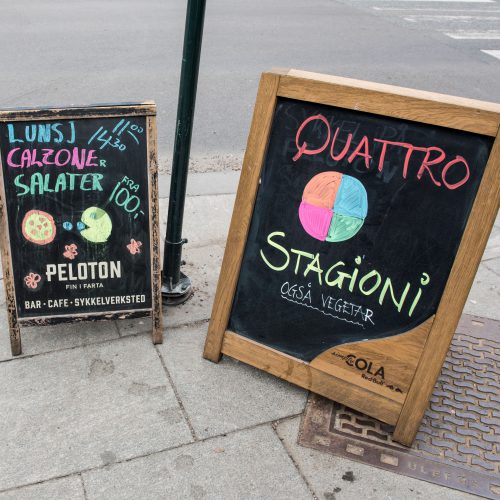 LUNSJ 11⁰⁰
14³⁰
CALZONER
SALATER
FRA
100,-
PELOTON
FIN I FARTA
BAR · CAFE · SYKKELVERKSTED
QUATTRO
STAGIONI
OGSÅ VEGETAR
COLA
Red Bull